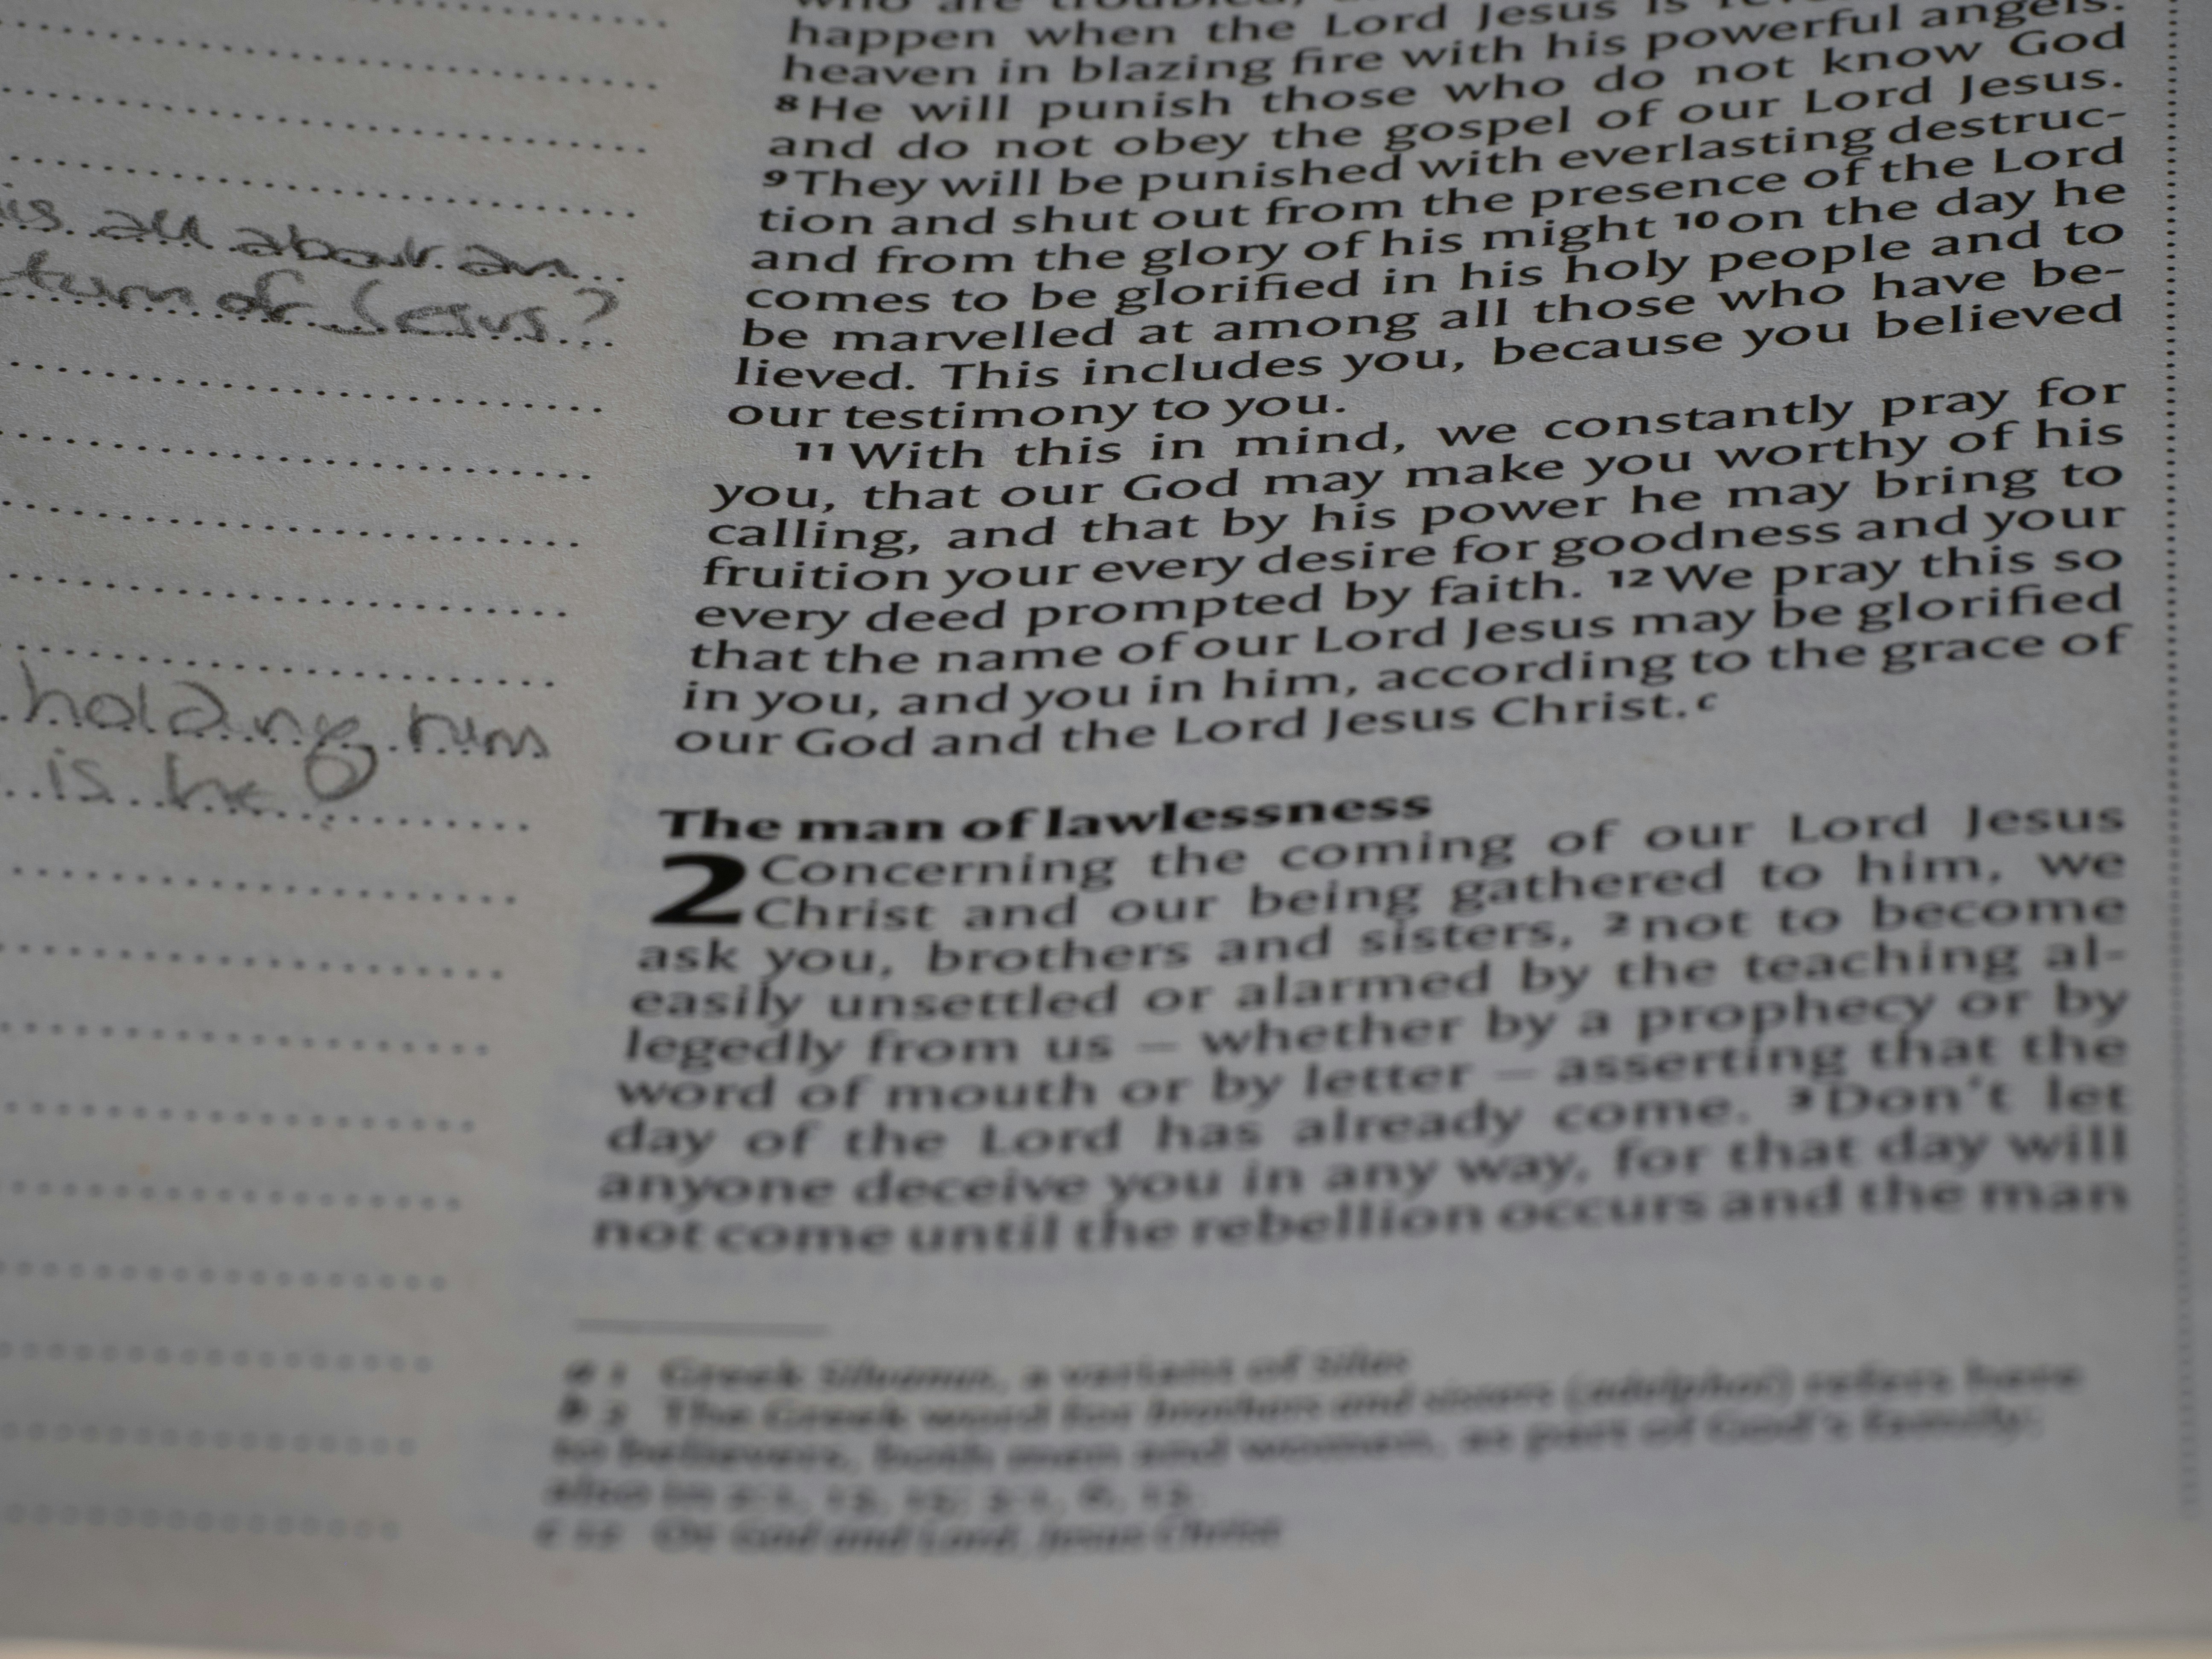 is all about an
turn of Jesus?
holding him
is he?
happen when the Lord Jesus is
heaven in blazing fire with his powerful angels.
8 He will punish those who do not know God
and do not obey the gospel of our Lord Jesus.
9 They will be punished with everlasting destruc-
tion and shut out from the presence of the Lord
and from the glory of his might 10 on the day he
comes to be glorified in his holy people and to
be marvelled at among all those who have be-
lieved. This includes you, because you believed
our testimony to you.
11 With this in mind, we constantly pray for
you, that our God may make you worthy of his
calling, and that by his power he may bring to
fruition your every desire for goodness and your
every deed prompted by faith. 12 We pray this so
that the name of our Lord Jesus may be glorified
in you, and you in him, according to the grace of
our God and the Lord Jesus Christ. c
The man of lawlessness
2 Concerning the coming of our Lord Jesus
Christ and our being gathered to him, we
ask you, brothers and sisters, 2 not to become
easily unsettled or alarmed by the teaching al-
legedly from us – whether by a prophecy or by
word of mouth or by letter – asserting that the
day of the Lord has already come. 3 Don't let
anyone deceive you in any way, for that day will
not come until the rebellion occurs and the man
a 1 Greek Silvanus, a variant of Silas
The Greek word for brothers and sisters (adelphoi) refers here
to believers, both men and women, as part of God's family;
also in
Or God and Lord, Jesus Christ